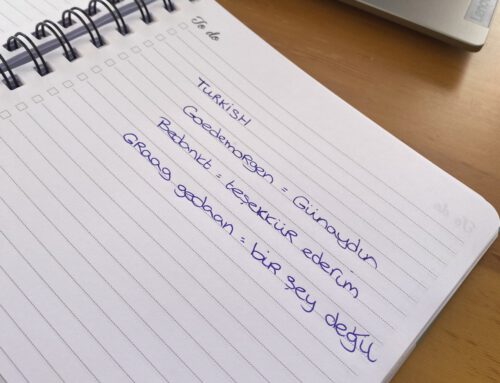 To do
TURKISH
Goedemorgen = Günaydın
Bedankt = teşekkür ederim
Graag gedaan = bir şey değil
To do